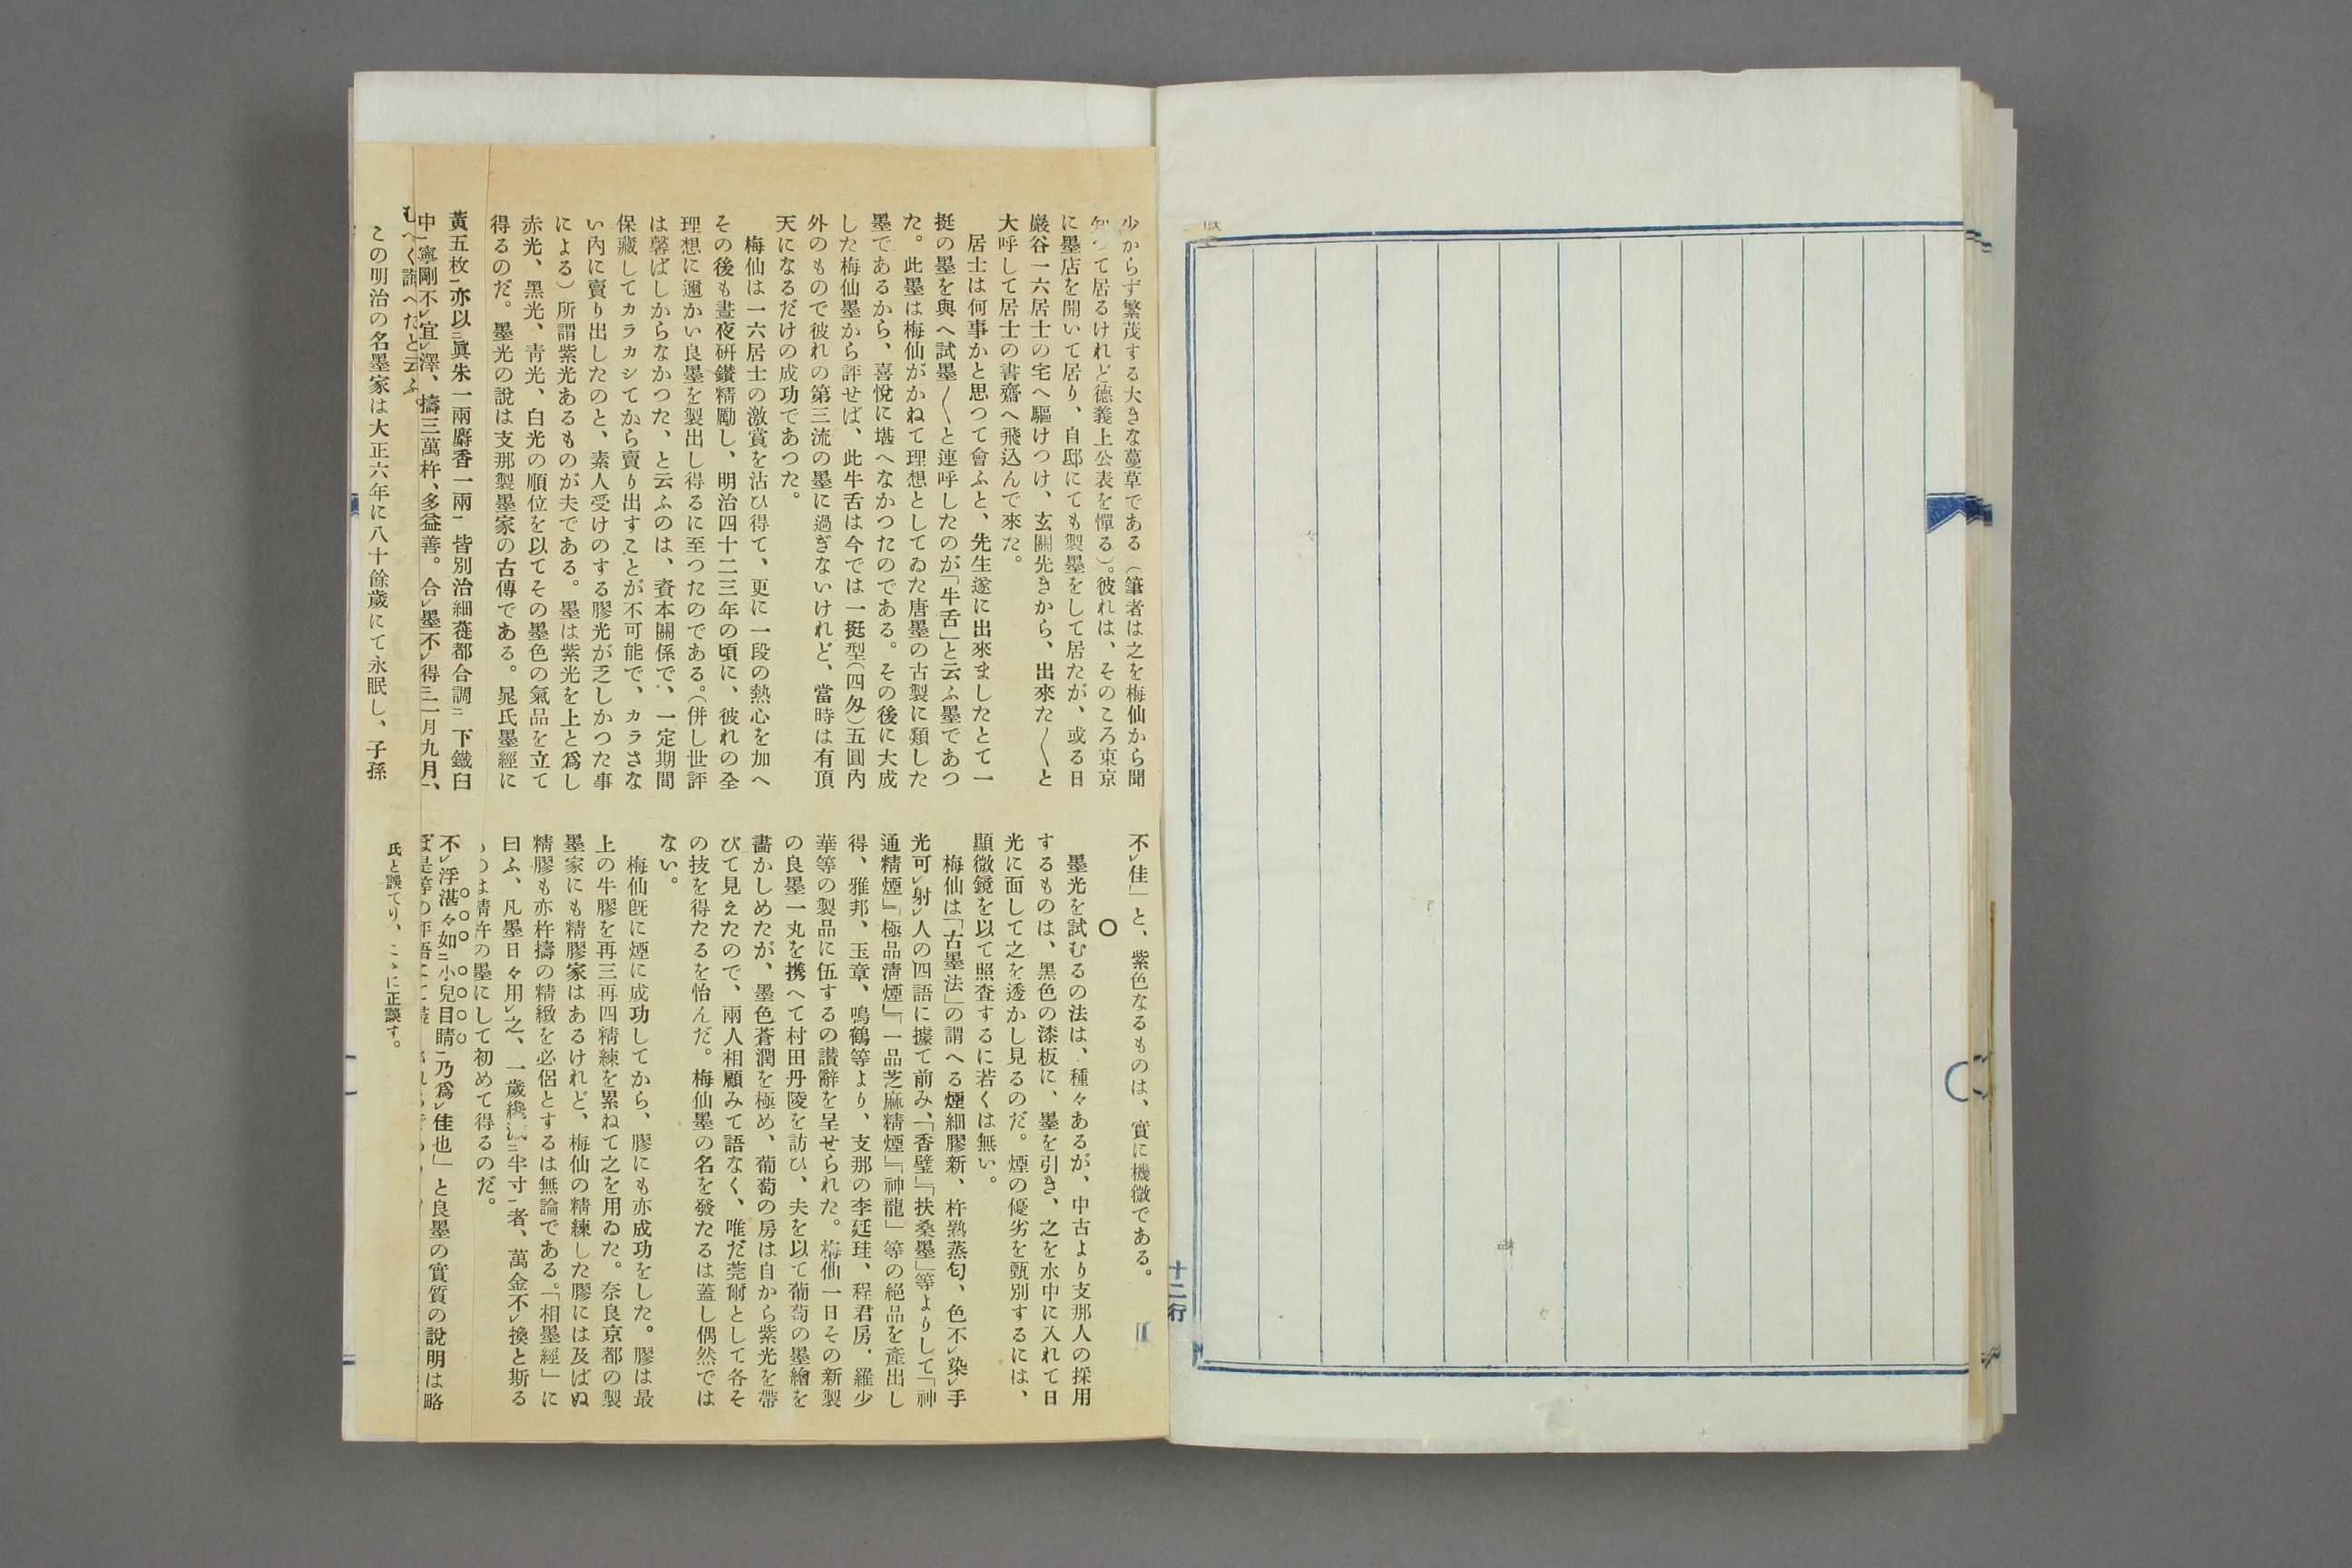 少からず繁茂する大きな蔓草である（筆者は之を梅仙から聞
知つて居るけれど德義上公表を憚る）。彼れは、そのころ東京
に墨店を開いて居り、自邸にても製墨をして居たが、或る日
巖谷一六居士の宅へ驅けつけ、玄關先きから、出來た〳〵と
大呼して居士の書齋へ飛込んで來た。
居士は何事かと思つて會ふと、先生遂に出來ましたとて一
挺の墨を與へ試墨〳〵と連呼したのが「牛舌」と云ふ墨であつ
た。此墨は梅仙がかねて理想としてゐた唐墨の古製に類した
墨であるから、喜悅に堪へなかつたのである。その後に大成
した梅仙墨から評せば、此牛舌は今では一挺型（四匁）五圓內
外のもので彼れの第三流の墨に過ぎないけれど、當時は有頂
天になるだけの成功であつた。
梅仙は一六居士の激賞を沽ひ得て、更に一段の熱心を加へ
その後も晝夜硏鑽精勵し、明治四十二三年の頃に、彼れの全
理想に邇かい良墨を製出し得るに至つたのである。（併し世評
は馨ばしからなかつた、と云ふのは、資本關係で、一定期間
保藏してカラカシてから賣り出すことが不可能で、カラさな
い內に賣り出したのと、素人受けのする膠光が乏しかつた事
による）所謂紫光あるものが夫である。墨は紫光を上と爲し
赤光、黑光、靑光、白光の順位を以てその墨色の氣品を立て
得るのだ。墨光の說は支那製墨家の古傳である。晁氏墨經に
黃五枚一亦以三眞朱一兩麝香一兩一皆別治細蓰都合調二下鐵臼
中一寧剛不レ宜レ澤、擣三萬杵、多益善。合レ墨不レ得三二月九月一、
むへく誂へたと云ふ。
この明治の名墨家は大正六年に八十餘歲にて永眠し、子孫
不レ佳」と、紫色なるものは、實に機微である。
○
墨光を試むるの法は、種々あるが、中古より支那人の採用
するものは、黑色の漆板に、墨を引き、之を水中に入れて日
光に面して之を透かし見るのだ。煙の優劣を甄別するには、
顯微鏡を以て照査するに若くは無い。
梅仙は「古墨法」の謂へる煙細膠新、杵熟蒸匂、色不レ染レ手
光可レ射レ人の四語に據て前み、「香璧」「扶桑墨」等よりして「神
通精煙」「極品淸煙」「一品芝麻精煙」「神龍」等の絕品を產出し
得、雅邦、玉章、鳴鶴等より、支那の李廷珪、程君房、羅少
華等の製品に伍するの讃辭を呈せられた。梅仙一日その新製
の良墨一丸を携へて村田丹陵を訪ひ、夫を以て葡萄の墨繪を
畵かしめたが、墨色蒼潤を極め、葡萄の房は自から紫光を帶
びて見えたので、兩人相顧みて語なく、唯だ莞爾として各そ
の技を得たるを怡んだ。梅仙墨の名を發たるは蓋し偶然では
ない。
梅仙旣に煙に成功してから、膠にも亦成功をした。膠は最
上の牛膠を再三再四精練を累ねて之を用ゐた。奈良京都の製
墨家にも精膠家はあるけれど、梅仙の精練した膠には及ばぬ
精膠も亦杵擣の精緻を必侶とするは無論である。「相墨經」に
曰ふ、凡墨日々用レ之、一歲纔減二半寸一者、萬金不レ換と斯る
ものは精杵の墨にして初めて得るのだ。
不レ浮湛々如二小兒目睛一乃爲レ佳也」と良墨の實質の說明は略
氏と誤てり、こゝに正誤す。
十二行